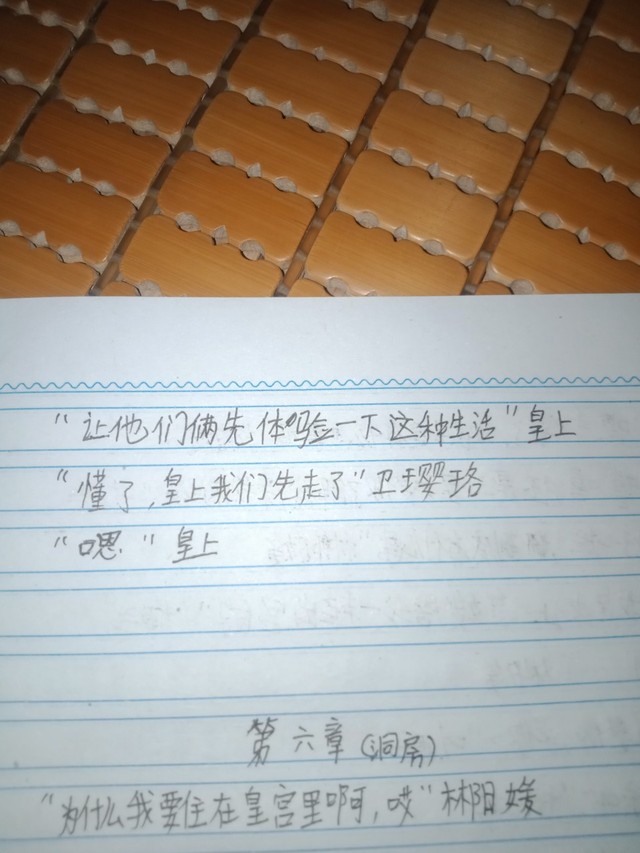 “让他们俩先体验一下这种生活”皇上
“懂了,皇上我们先走了”卫璎珞
“嗯”皇上
第六章(洞房)
“为什么我要住在皇宫里啊,哎”林阳媛